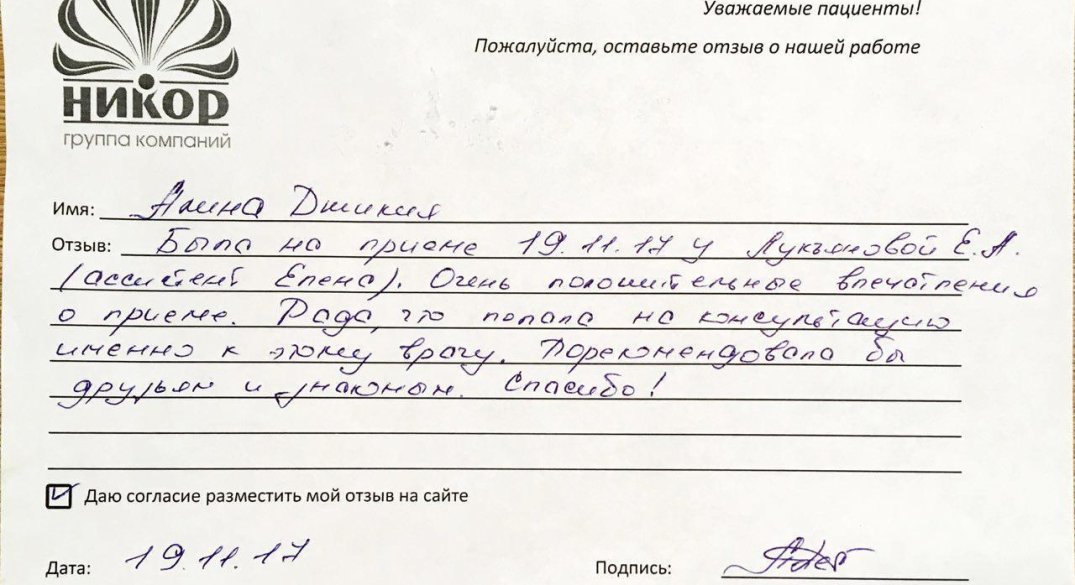 Уважаемые пациенты!
Пожалуйста, оставьте отзыв о нашей работе
НИКОР
группа компаний
Имя: Алина Джикия
Отзыв: Была на приеме 19.11.17 у Лукьяновой Е.А.
(ассистент Елена). Очень положительные впечатления
о приеме. Рада, что попала на консультацию
именно к этому врачу. Порекомендовала бы
друзьям и знакомым. Спасибо!
Даю согласие разместить мой отзыв на сайте
Дата: 19.11.17 Подпись: